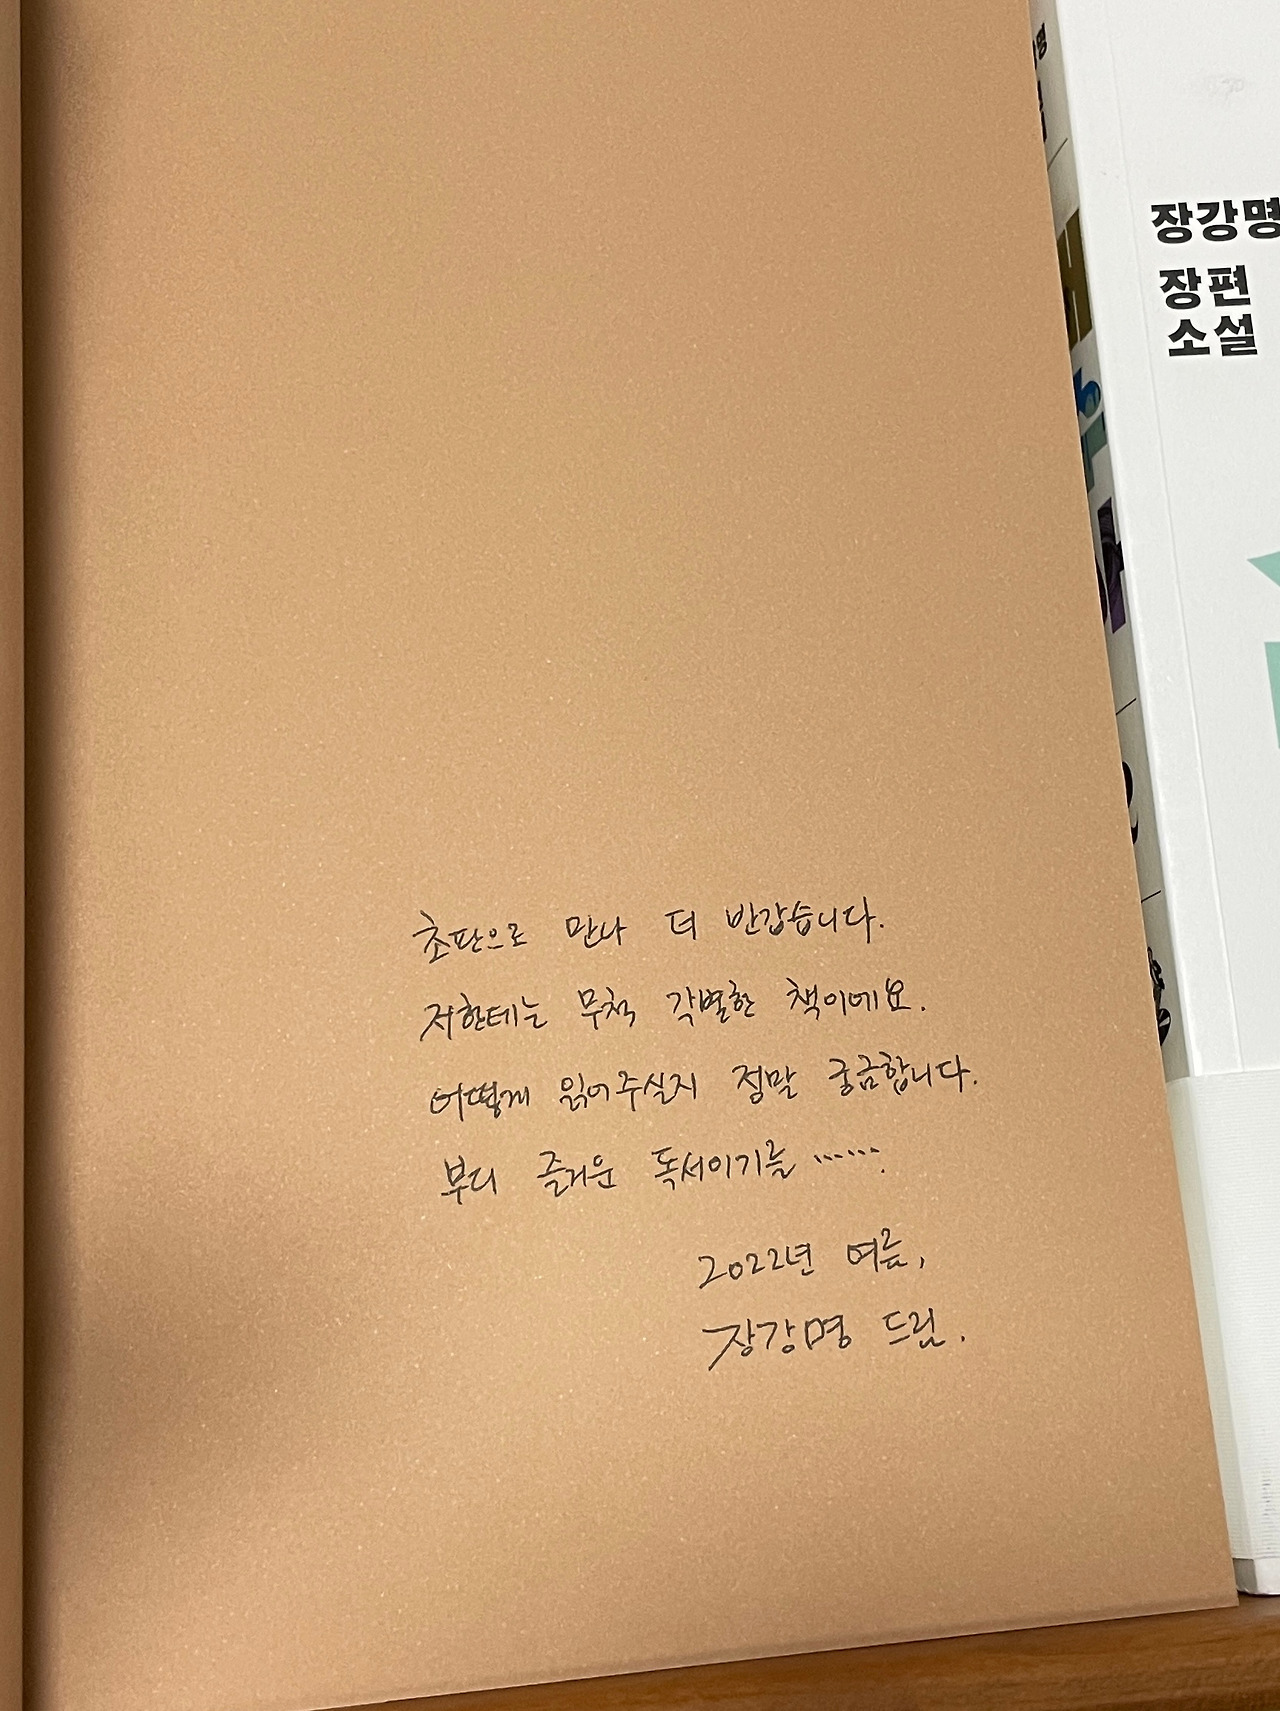 초판으로 만나 더 반갑습니다.
저한테는 무척 각별한 책이에요.
어떻게 읽어주실지 정말 궁금합니다.
부디 즐거운 독서이기를 …….
2022년 여름,
장강명 드림.
장강명
장편
소설
2